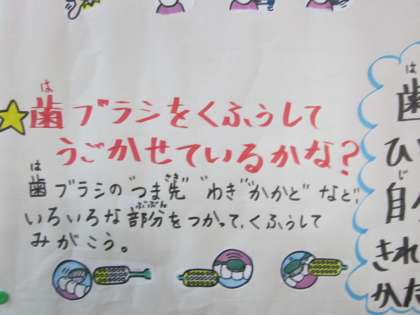 歯ブラシをくふうして
うごかせているかな？
歯ブラシの"つま先""わき""かかと"など、
いろいろな部分をつかって、くふうして
みがこう。
は
歯
ひ
自
きれ
かた